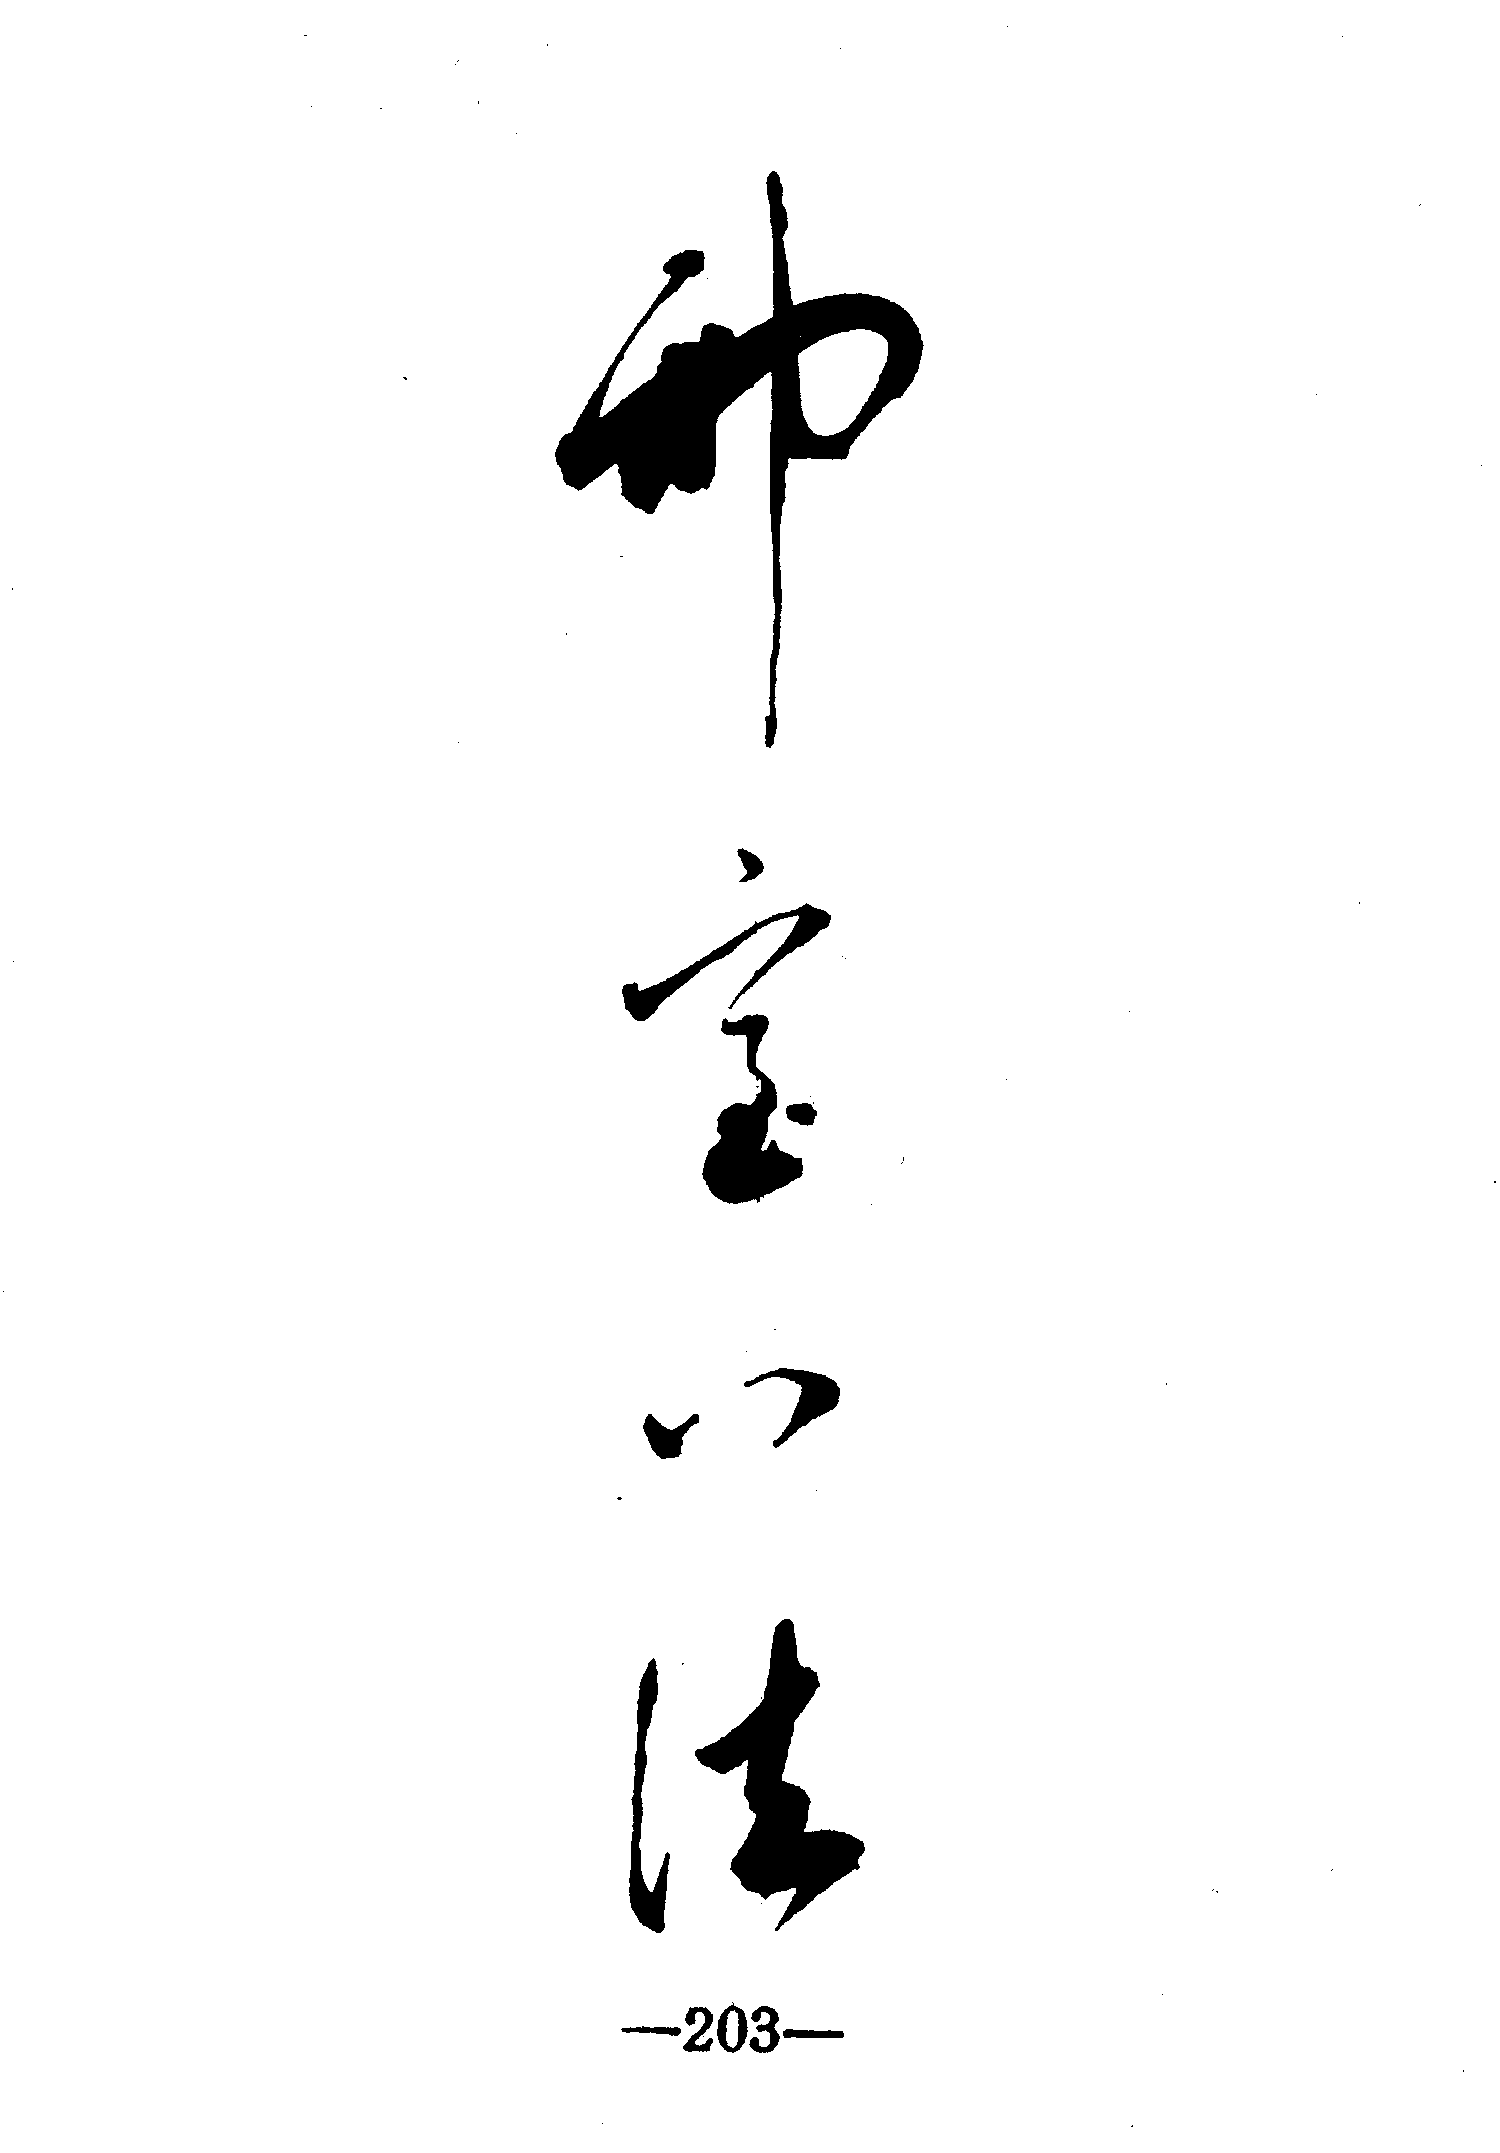 神室八法
—203—